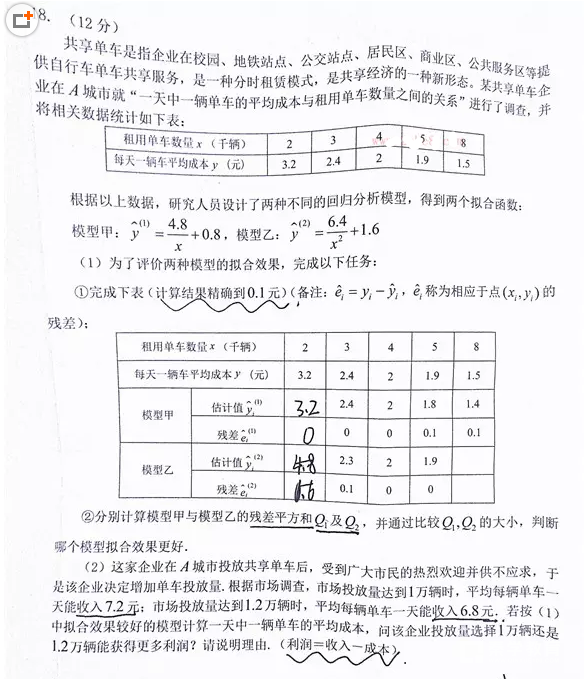 18.（12分）
共享单车是指企业在校园、地铁站点、公交站点、居民区、商业区、公共服务区等提
供自行车单车共享服务，是一种分时租赁模式，是共享经济的一种新形态。某共享单车企
业在 A 城市就“一天中一辆单车的平均成本与租用单车数量之间的关系”进行了调查，并
将相关数据统计如下表：
租用单车数量 x （千辆） 2 3 4 5 8
每天一辆车平均成本 y （元） 3.2 2.4 2 1.9 1.5
根据以上数据，研究人员设计了两种不同的回归分析模型，得到两个拟合函数：
模型甲：ŷ⁽¹⁾ = 4.8/x + 0.8，模型乙：ŷ⁽²⁾ = 6.4/x² + 1.6
（1）为了评价两种模型的拟合效果，完成以下任务：
①完成下表（计算结果精确到0.1元）（备注：êᵢ = yᵢ − ŷᵢ，êᵢ 称为相应于点(xᵢ, yᵢ) 的
残差）；
租用单车数量 x （千辆） 2 3 4 5 8
每天一辆车平均成本 y （元） 3.2 2.4 2 1.9 1.5
模型甲 估计值 ŷᵢ⁽¹⁾ 3.2 2.4 2 1.8 1.4
残差 êᵢ⁽¹⁾ 0 0 0 0.1 0.1
模型乙 估计值 ŷᵢ⁽²⁾ 2.3 2 1.9
残差 êᵢ⁽²⁾ 0.1 0 0
②分别计算模型甲与模型乙的残差平方和Q₁及Q₂，并通过比较Q₁,Q₂的大小，判断
哪个模型拟合效果更好．
（2）这家企业在 A 城市投放共享单车后，受到广大市民的热烈欢迎并供不应求，于
是该企业决定增加单车投放量．根据市场调查，市场投放量达到1万辆时，平均每辆单车一
天能收入7.2元；市场投放量达到1.2万辆时，平均每辆单车一天能收入6.8元．若按（1）
中拟合效果较好的模型计算一天中一辆单车的平均成本，问该企业投放量选择1万辆还是
1.2万辆能获得更多利润？请说明理由．（利润＝收入－成本）．